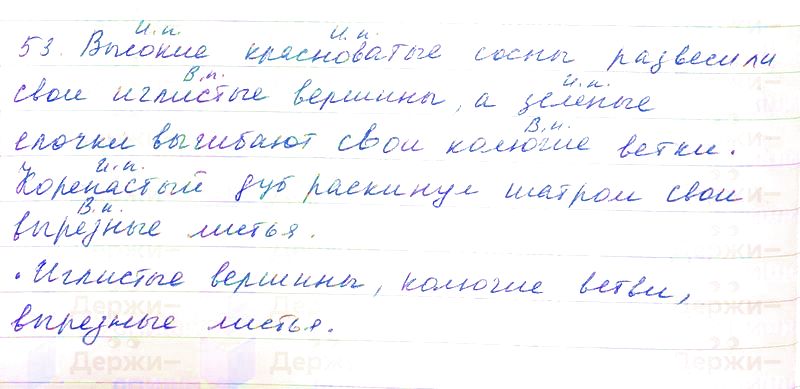 И.п. И.п.
53. Высокие красноватые сосны развесили
В.п. И.п.
свои иглистые вершины, а зеленые
В.п.
елочки выгибают свои колючие ветки.
И.п.
Коренастый дуб раскинул шатром свои
В.п.
вырезные листья.
. Иглистые вершины, колючие ветви,
вырезные листья.
Держи–
Держи–
Держи–
Держи–